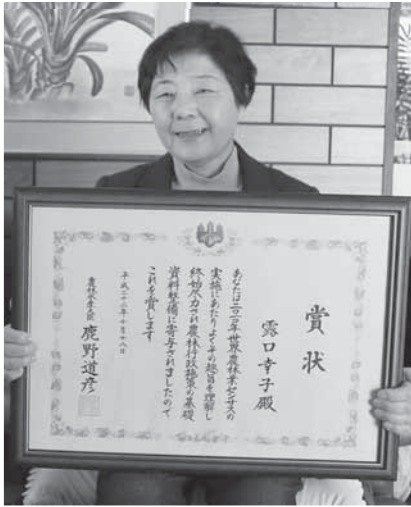 賞状
露口幸子殿
あなたは二〇一〇年世界農林業センサスの
実施にあたりよくその趣旨を理解し
終始尽力され農林行政施策の基礎
資料整備に寄与されましたので
これを賞します
平成二十二年十月十八日
農林水産大臣 鹿野道彦